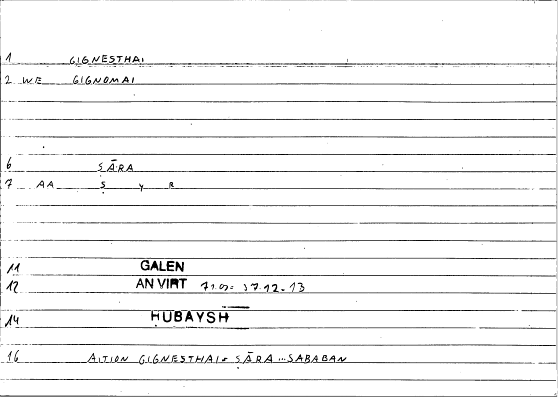 1 GIGNESTHAI
2 WE GIGNOMAI
6 SĀRA
7 AA S y R
11 GALEN
12 AN VIRT
14 HUBAYSH
16 AITION GIGNESTHAI = SĀRA ... SABABAN